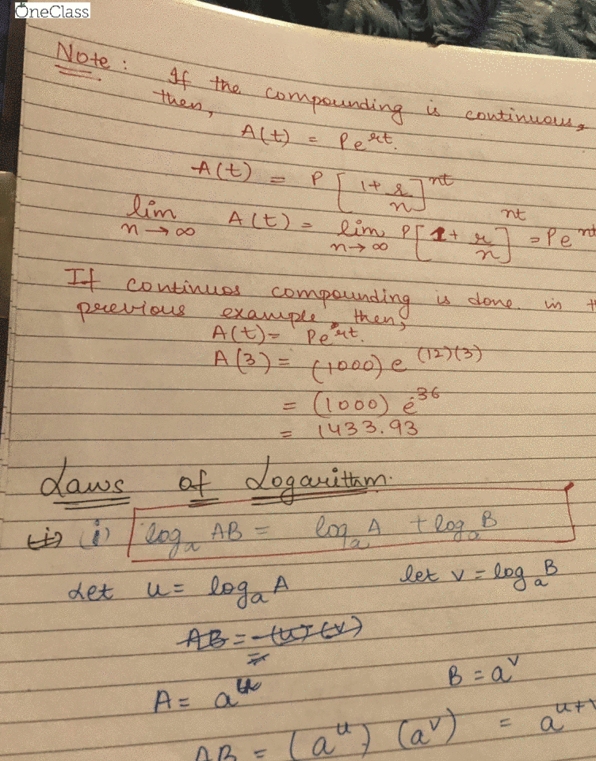 OneClass
Note: If the compounding is continuous,
then,
A(t) = Pe^rt.
A(t) = P [1+ r/n]^nt
lim n→∞ A(t) = lim n→∞ P[1+ r/n]^nt = Pe
If continuos compounding is done in
previous example then,
A(t) = Pe^rt.
A(3) = (1000) e^(12)(3)
= (1000) e^.36
= 1433.93
Laws of Logarithm.
(i) log_a AB = log_a A + log_a B
Let u = log_a A let v = log_a B
AB = (u)(v)
=
A = a^u B = a^v
AB = (a^u) (a^v) = a^u+v